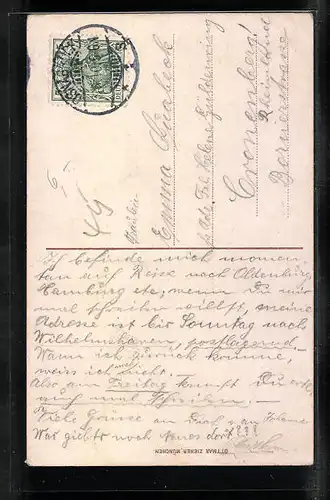 Fräulein
Emma
p. Adr. Frl. Helene
Cronenberg!
Rheinland
Bernerstrasse
Ich befinde mich momen-
tan auf Reise nach Oldenburg,
Hamburg etc, wenn Du mir
mal schreiben willst, meine
Adresse ist bis Sonntag nach
Wilhelmshaven, postlagernd.
Wann ich zurück komme,
weiss ich nicht.
Also am Freitag kannst Du
auf mal schreiben.
Viele Grüsse an Dich & an Helene
Was giebts noch neues dort???
OTTMAR ZIEHER, MÜNCHEN